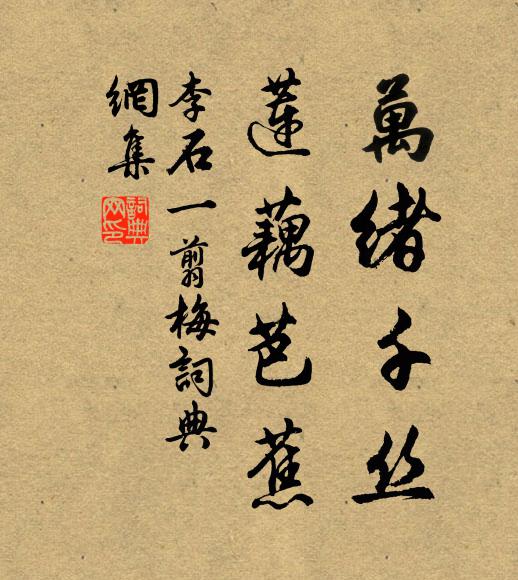 萬緒千丝
蓮藕芭蕉
李石一剪梅詞典
網集
詞典
网印